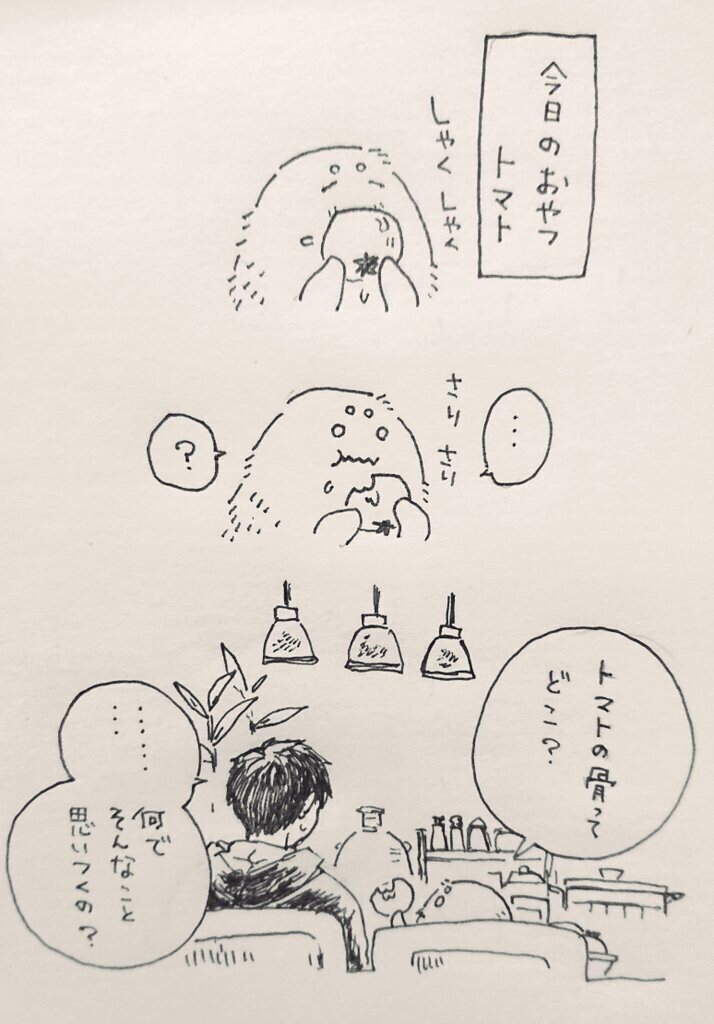 今日のおやつ
トマト
しゃくしゃく
…
さりさり
?
トマトの骨って
どこ?
………
…
何で
そんなこと
思いつくの?